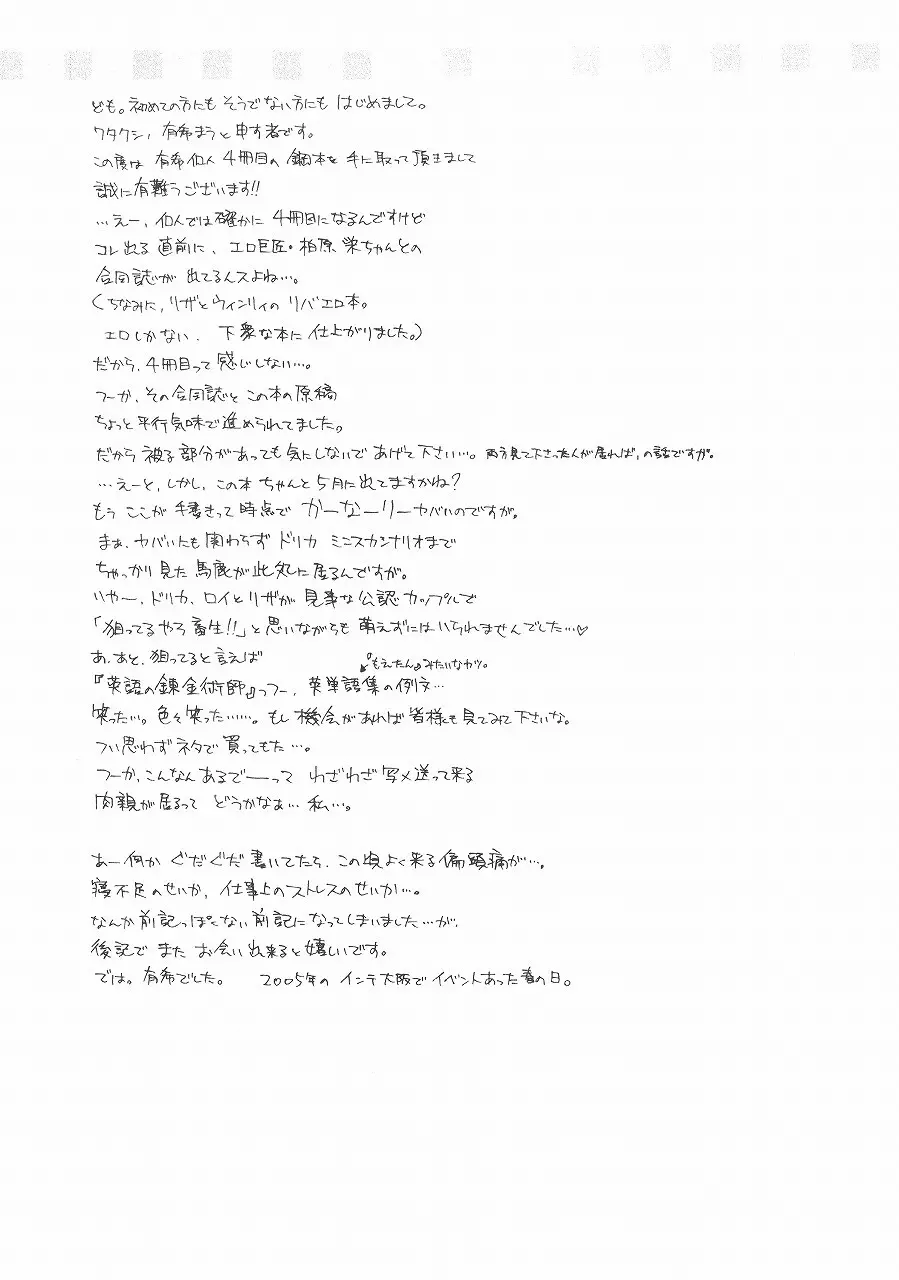 ども。初めての方にもそうでない方にもはじめまして。
ワタクシ、有希まうと申す者です。
この度は有希個人4冊目の鋼本を手に取って頂きまして
誠に有難うございます!!
…えー、個人では確かに4冊目になるんですけど
コレ出る直前に、エロ巨匠・柏原栄ちゃんとの
合同誌が出てるんスよね…。
(ちなみに、リザとウィンリィのリバエロ本。
エロしかない、下衆な本に仕上がりました。)
だから、4冊目って感じしない…。
つーか、その合同誌とこの本の原稿
ちょっと平行気味で進められてました。
だから被る部分があっても気にしないであげて下さい…。両方見て下さった人が居れば、の話ですが。
…えーと、しかし、この本ちゃんと5月に出てますかね?
もうここが手書きって時点でかーなーりーヤバいのですが。
まぁ、ヤバいにも関わらずドリカミニスカシナリオまで
ちゃっかり見た馬鹿が此処に居るんですが。
いやー、ドリカ、ロイとリザが見事な公認カップルで
「狙ってるやろ畜生!!」と思いながらも萌えずにはいられませんでした…♡
あ、あと、狙ってると言えば
『もえたん』みたいなカンジ。
『英語の錬金術師』っつー、英単語集の例文…
笑った…。色々笑った……。もし機会があれば皆様も見てみて下さいな。
つい思わずネタで買ってもた…。
つーか、こんなんあるでーーってわざわざ写メ送って来る
肉親が居るってどうかなぁ…私…。
あー何かぐだぐだ書いてたら、この頃よく来る偏頭痛が…。
寝不足のせいか、仕事上のストレスのせいか…。
なんか前記っぽくない前記になってしまいました…が、
後記でまたお会い出来ると嬉しいです。
では。有希でした。 2005年のインテ大阪でイベントあった春の日。